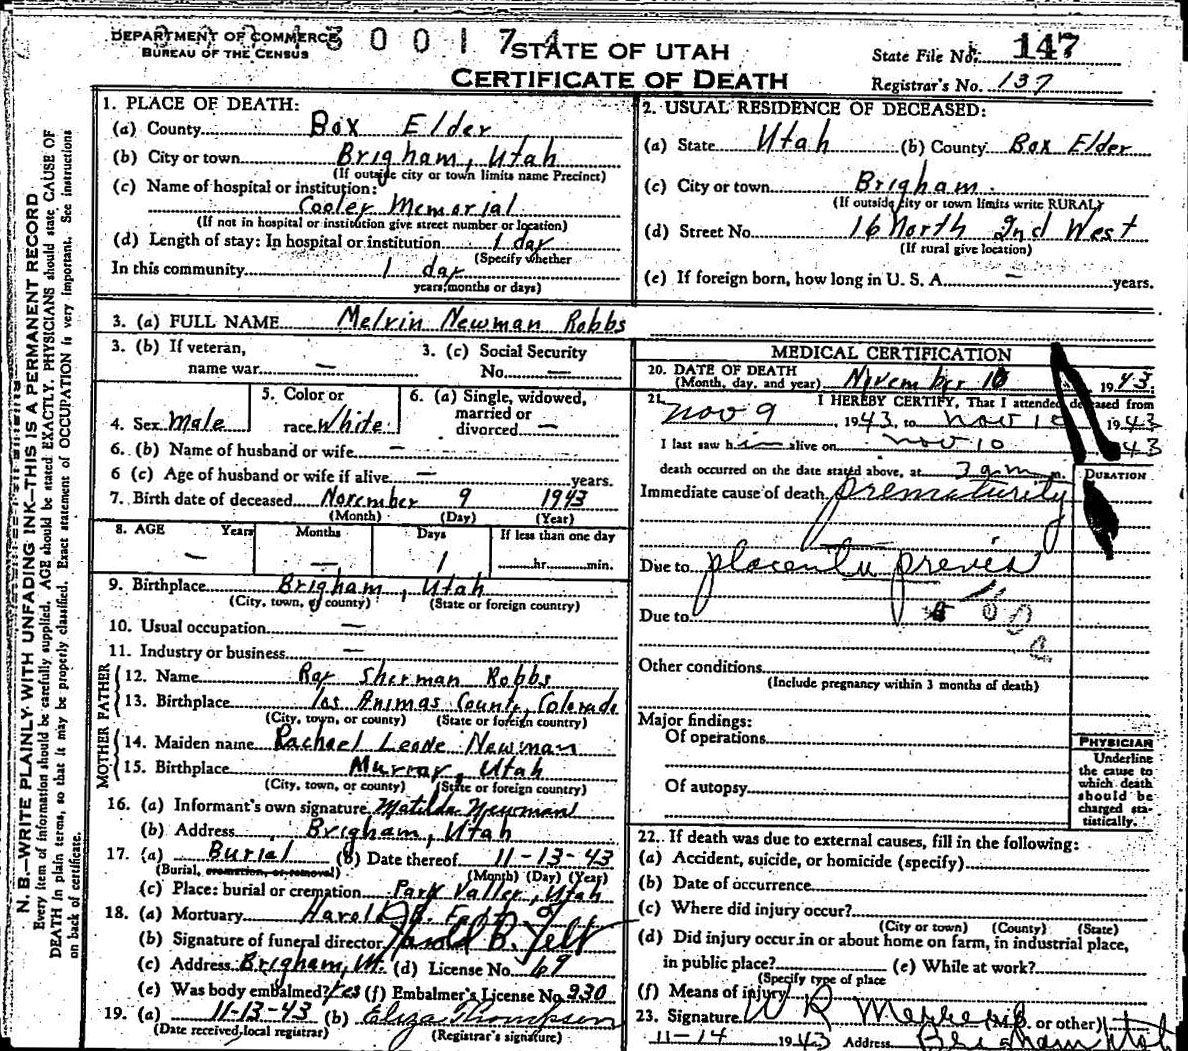 DEPARTMENT OF COMMERCE
BUREAU OF THE CENSUS
STATE OF UTAH
CERTIFICATE OF DEATH
State File No. 147
Registrar's No. 137
N. B.—WRITE PLAINLY WITH UNFADING INK—THIS IS A PERMANENT RECORD
Every item of information should be carefully supplied. AGE should be stated EXACTLY. PHYSICIANS should state CAUSE OF
DEATH in plain terms, so that it may be properly classified. Exact statement of OCCUPATION is very important. See instructions
on back of certificate.
1. PLACE OF DEATH:
(a) County Box Elder
(b) City or town Brigham, Utah
(If outside city or town limits name Precinct)
(c) Name of hospital or institution:
Cooley Memorial
(If not in hospital or institution give street number or location)
(d) Length of stay: In hospital or institution 1 day
(Specify whether
In this community 1 day
years, months or days)
2. USUAL RESIDENCE OF DECEASED:
(a) State Utah (b) County Box Elder
(c) City or town Brigham
(If outside city or town limits write RURAL)
(d) Street No. 16 North 2nd West
(If rural give location)
(e) If foreign born, how long in U. S. A. — years.
3. (a) FULL NAME Melvin Newman Robbs
3. (b) If veteran, name war —
3. (c) Social Security No. —
4. Sex Male
5. Color or race White
6. (a) Single, widowed, married or divorced —
6. (b) Name of husband or wife —
6 (c) Age of husband or wife if alive — years.
7. Birth date of deceased November 9 1943
(Month) (Day) (Year)
8. AGE Years Months Days If less than one day
— — 1 hr. min.
9. Birthplace Brigham, Utah
(City, town, or county) (State or foreign country)
10. Usual occupation —
11. Industry or business —
FATHER
12. Name Ray Sherman Robbs
13. Birthplace Los Animas County, Colorado
(City, town, or county) (State or foreign country)
MOTHER
14. Maiden name Rachael Leone Newman
15. Birthplace Murray, Utah
(City, town, or county) (State or foreign country)
16. (a) Informant's own signature Matilda Newman
(b) Address Brigham, Utah
17. (a) Burial (b) Date thereof 11-13-43
(Burial, cremation, or removal) (Month) (Day) (Year)
(c) Place: burial or cremation Park Valley, Utah
18. (a) Mortuary Harold B. Felt
(b) Signature of funeral director Harold B. Felt
(c) Address Brigham, Ut. (d) License No. 69
(e) Was body embalmed? Yes (f) Embalmer's License No. 230
19. (a) 11-13-43 (b) Eliza Thompson
(Date received, local registrar) (Registrar's signature)
MEDICAL CERTIFICATION
20. DATE OF DEATH
(Month, day, and year) November 10 1943.
21. I HEREBY CERTIFY, That I attended deceased from
Nov 9 1943, to Nov 10 1943
I last saw him alive on Nov 10 43
death occurred on the date stated above, at 3 am m.
DURATION
Immediate cause of death prematurity
Due to placenta previa
Due to
Other conditions
(Include pregnancy within 3 months of death)
Major findings:
Of operations
Of autopsy
PHYSICIAN
Underline
the cause to
which death
should be
charged sta-
tistically.
22. If death was due to external causes, fill in the following:
(a) Accident, suicide, or homicide (specify)
(b) Date of occurrence
(c) Where did injury occur?
(City or town) (County) (State)
(d) Did injury occur in or about home on farm, in industrial place,
in public place? (e) While at work?
(Specify type of place
(f) Means of injury
23. Signature W R (M.D. or other)
11-14 1943 Address Brigham Utah